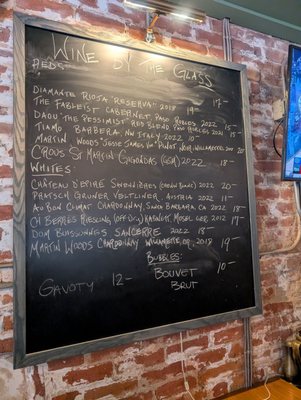 WINE BY THE GLASS
REDS
DIAMANTE RIOJA RESERVA 2018 17-
THE FABLEIST CABERNET, PASO ROBLES 2022 15-
DAOU "THE PESSIMIST" RED BLEND, PASO ROBLES 2021 15-
TIAMO BARBERA, NW ITALY 2022 10-
MARTIN WOODS "JESSE JAMES VIN" PINOT NOIR, WILLAMETTE 20-
CROUS ST MARTIN GIGONDAS (GSM) 2022 18-
WHITES
CHÂTEAU D'EPIRÉ SAVENNIÈRES (CHENIN BLANC) 2022 20-
PRATSCH GRUNER VELTLINER, AUSTRIA 2022 11-
AU BON CLIMAT CHARDONNAY, SANTA BARBARA, CA 2022 18-
CH BERRES RIESLING (OFF DRY) KABINETT MOSEL GER 2012 19-
DOM BUISSONNES SANCERRE 2022 18-
MARTIN WOODS CHARDONNAY, WILLAMETTE, OR, 2018 19-
BUBBLES:
BOUVET 10-
BRUT
GAVOTY 12-